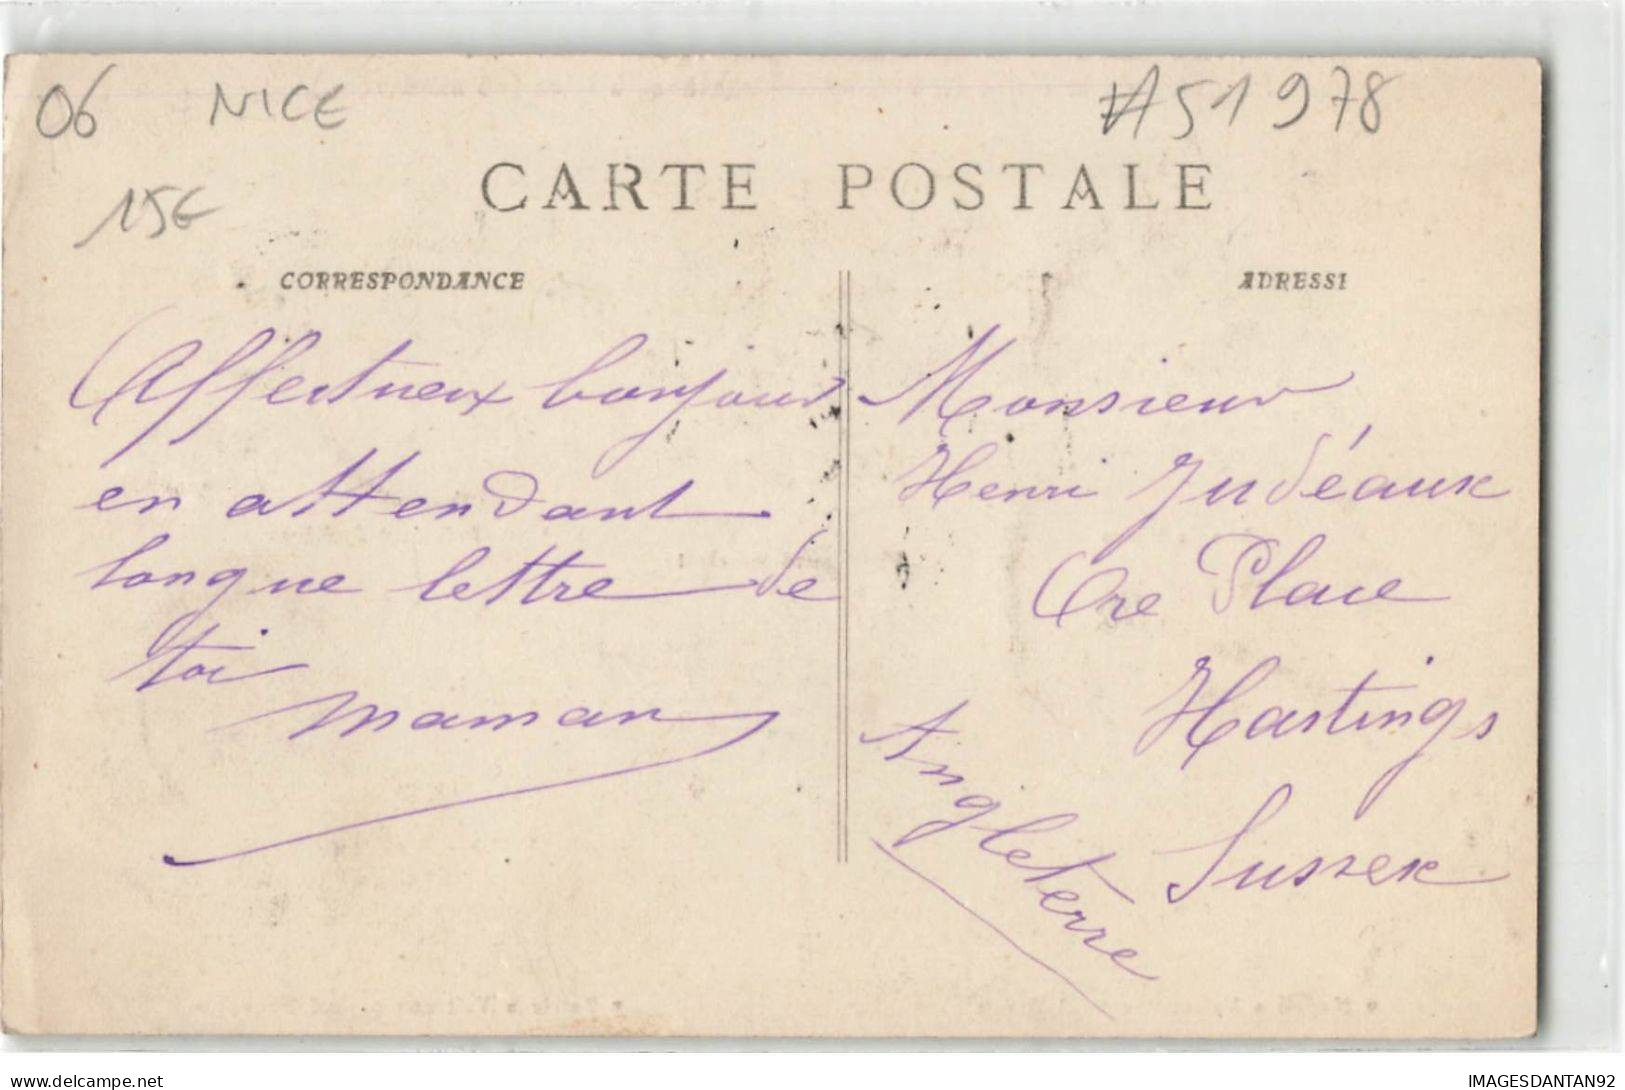 06 NICE #A51978
15€
CARTE POSTALE
CORRESPONDANCE
Affectueux bonjour
en attendant
longue lettre de
toi
maman
ADRESSE
Monsieur
Henri Judéaux
Ore Place
Hastings
Sussex
Angleterre
delcampe.net
IMAGESDANTAN92